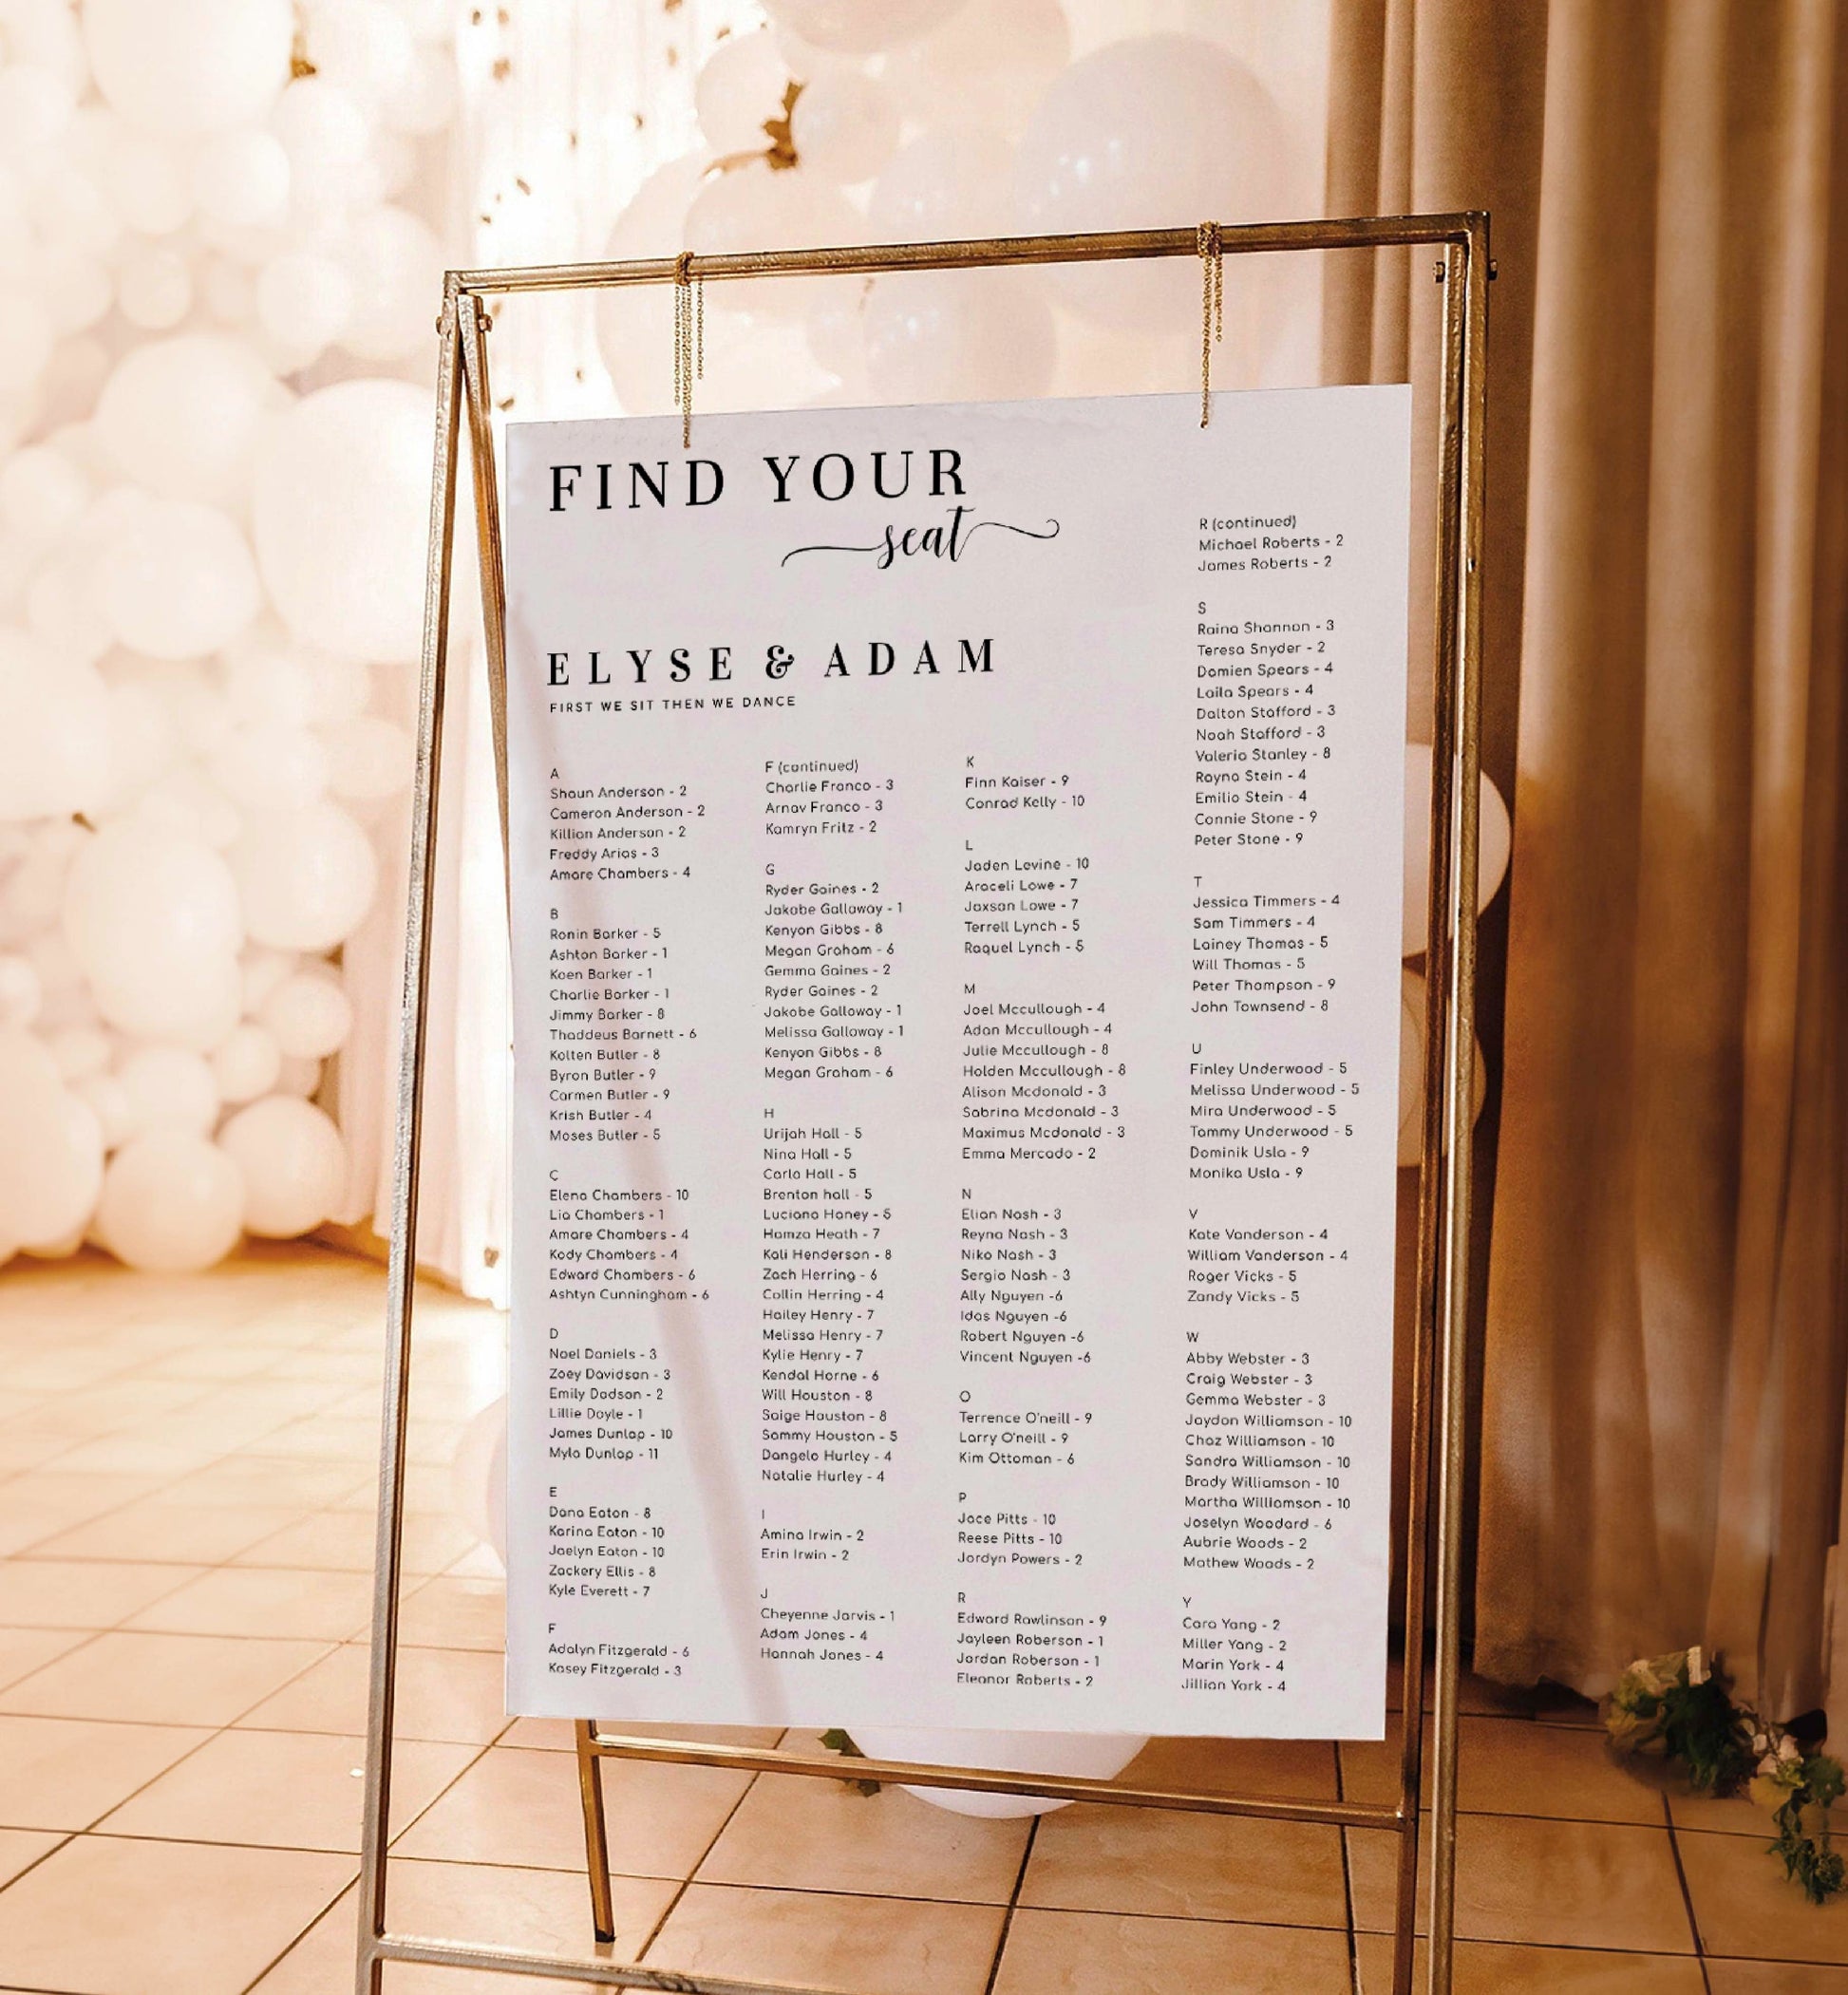 FIND YOUR
seat
ELYSE & ADAM
FIRST WE SIT THEN WE DANCE
A
Shaun Anderson - 2
Cameron Anderson - 2
Killian Anderson - 2
Freddy Arias - 3
Amare Chambers - 4
B
Ronin Barker - 5
Ashton Barker - 1
Koen Barker - 1
Charlie Barker - 1
Jimmy Barker - 8
Thaddeus Barnett - 6
Kolten Butler - 8
Byron Butler - 9
Carmen Butler - 9
Krish Butler - 4
Moses Butler - 5
C
Elena Chambers - 10
Lia Chambers - 1
Amare Chambers - 4
Kody Chambers - 4
Edward Chambers - 6
Ashtyn Cunningham - 6
D
Noel Daniels - 3
Zoey Davidson - 3
Emily Dodson - 2
Lillie Doyle - 1
James Dunlap - 10
Myla Dunlap - 11
E
Dana Eaton - 8
Karina Eaton - 10
Jaelyn Eaton - 10
Zackery Ellis - 8
Kyle Everett - 7
F
Adalyn Fitzgerald - 6
Kasey Fitzgerald - 3
F (continued)
Charlie Franco - 3
Arnav Franco - 3
Kamryn Fritz - 2
G
Ryder Gaines - 2
Jakobe Galloway - 1
Kenyon Gibbs - 8
Megan Graham - 6
Gemma Gaines - 2
Ryder Gaines - 2
Jakobe Galloway - 1
Melissa Galloway - 1
Kenyon Gibbs - 8
Megan Graham - 6
H
Urijah Hall - 5
Nina Hall - 5
Carla Hall - 5
Brenton hall - 5
Luciana Haney - 5
Hamza Heath - 7
Kali Henderson - 8
Zach Herring - 6
Collin Herring - 4
Hailey Henry - 7
Melissa Henry - 7
Kylie Henry - 7
Kendal Horne - 6
Will Houston - 8
Saige Houston - 8
Sammy Houston - 5
Dangelo Hurley - 4
Natalie Hurley - 4
I
Amina Irwin - 2
Erin Irwin - 2
J
Cheyenne Jarvis - 1
Adam Jones - 4
Hannah Jones - 4
K
Finn Kaiser - 9
Conrad Kelly - 10
L
Jaden Levine - 10
Araceli Lowe - 7
Jaxson Lowe - 7
Terrell Lynch - 5
Raquel Lynch - 5
M
Joel Mccullough - 4
Adan Mccullough - 4
Julie Mccullough - 8
Holden Mccullough - 8
Alison Mcdonald - 3
Sabrina Mcdonald - 3
Maximus Mcdonald - 3
Emma Mercado - 2
N
Elian Nash - 3
Reyna Nash - 3
Niko Nash - 3
Sergio Nash - 3
Ally Nguyen -6
Idas Nguyen -6
Robert Nguyen -6
Vincent Nguyen -6
O
Terrence O'neill - 9
Larry O'neill - 9
Kim Ottoman - 6
P
Jace Pitts - 10
Reese Pitts - 10
Jordyn Powers - 2
R
Edward Rawlinson - 9
Jayleen Roberson - 1
Jordan Roberson - 1
Eleanor Roberts - 2
R (continued)
Michael Roberts - 2
James Roberts - 2
S
Raina Shannon - 3
Teresa Snyder - 2
Damien Spears - 4
Laila Spears - 4
Dalton Stafford - 3
Noah Stafford - 3
Valeria Stanley - 8
Rayna Stein - 4
Emilio Stein - 4
Connie Stone - 9
Peter Stone - 9
T
Jessica Timmers - 4
Sam Timmers - 4
Lainey Thomas - 5
Will Thomas - 5
Peter Thompson - 9
John Townsend - 8
U
Finley Underwood - 5
Melissa Underwood - 5
Mira Underwood - 5
Tammy Underwood - 5
Dominik Usla - 9
Monika Usla - 9
V
Kate Vanderson - 4
William Vanderson - 4
Roger Vicks - 5
Zandy Vicks - 5
W
Abby Webster - 3
Craig Webster - 3
Gemma Webster - 3
Jaydon Williamson - 10
Chaz Williamson - 10
Sandra Williamson - 10
Brady Williamson - 10
Martha Williamson - 10
Joselyn Woodard - 6
Aubrie Woods - 2
Mathew Woods - 2
Y
Cara Yang - 2
Miller Yang - 2
Marin York - 4
Jillian York - 4